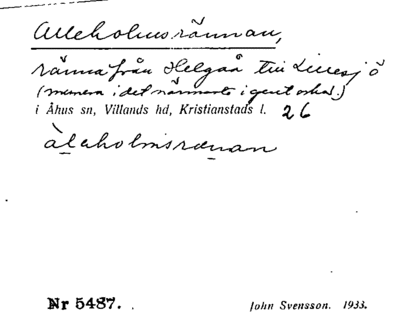 Alleholmsrännan,
ränna från Helgaå till Lillesjö
(numera i det närmaste igent orkad.)
i Åhus sn, Villands hd, Kristianstads l. 26
àlaholmsrænan
Nr 5487. John Svensson. 1933.